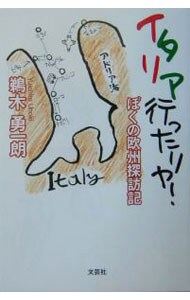 イタリア行ったリャ!
ぼくの欧州探訪記
鵜木 勇一朗
アドリア海
Italy
文芸社